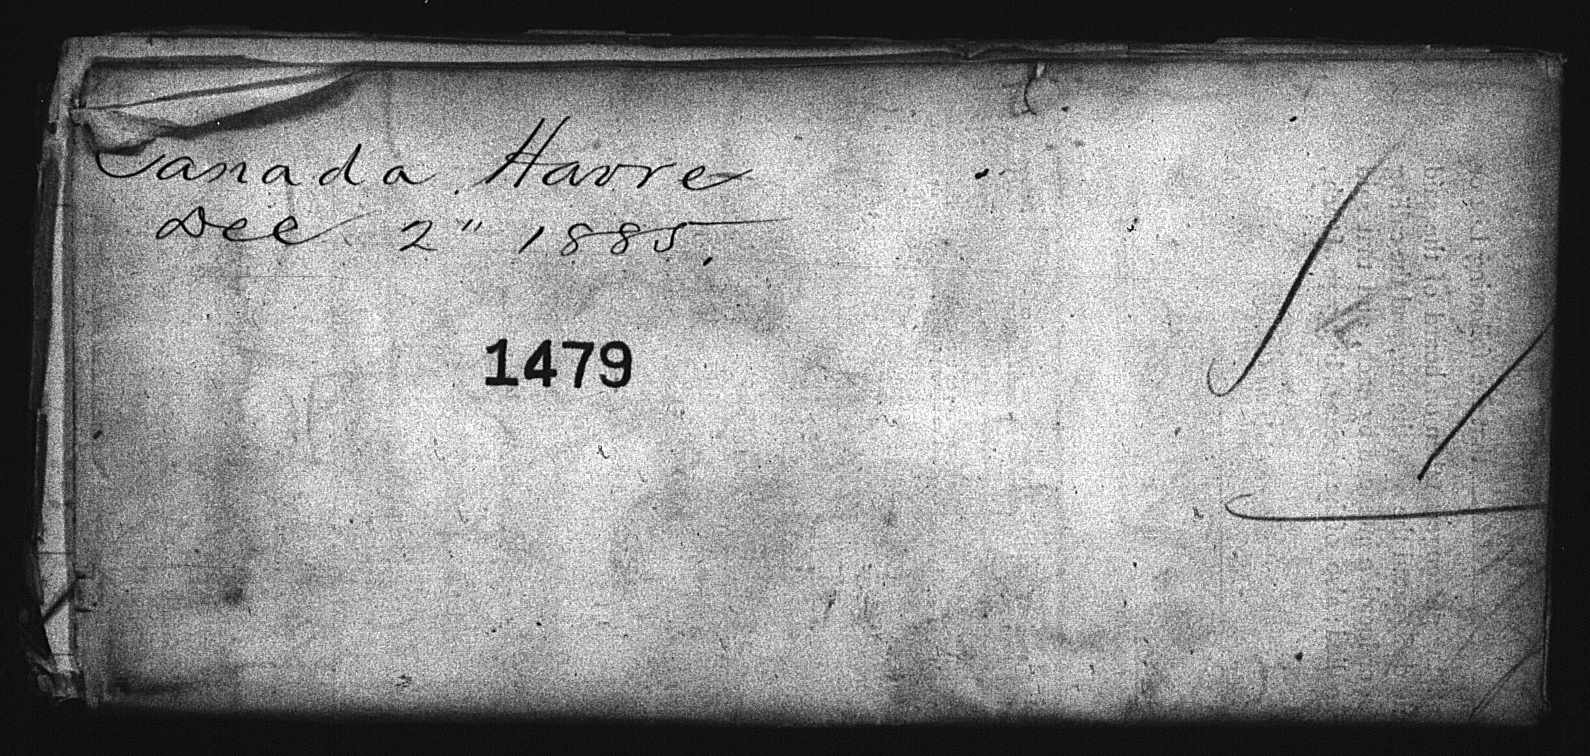 Canada Havre
Dec 2" 1885.
1479